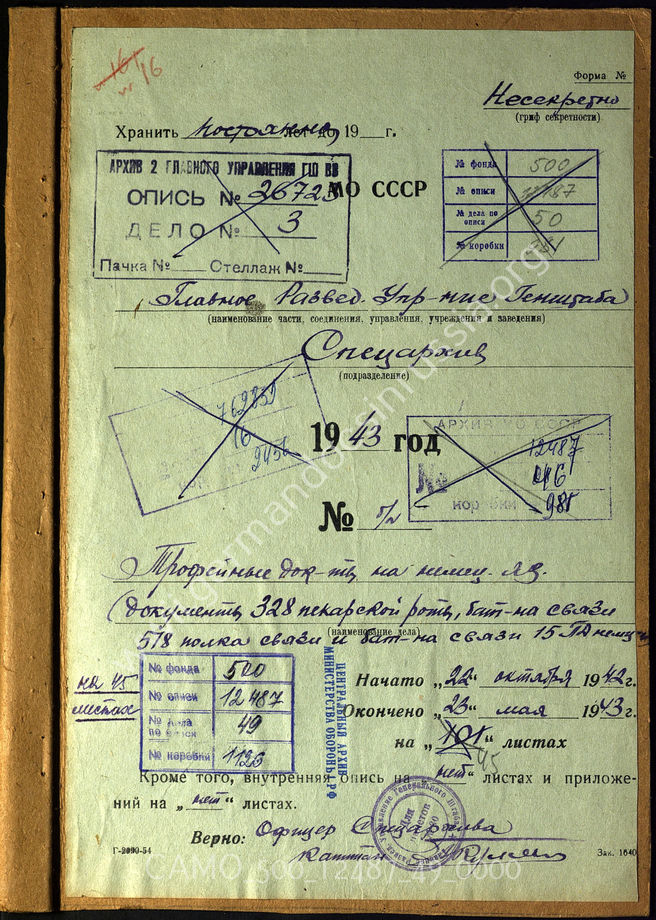 16
Форма №
Несекретно
(гриф секретности)
Хранить постоянно лет до 19 г.
АРХИВ 2 ГЛАВНОГО УПРАВЛЕНИЯ ГШ ВВ
ОПИСЬ № 26723
ДЕЛО № 3
Пачка № Стеллаж №
МО СССР
№ фонда 500
№ описи 12487
№ дела по описи 50
№ коробки
Главное Развед. Упр-ние Генштаба
(наименование части, соединения, управления, учреждения и заведения)
Спецархив
(подразделение)
16
1943 год
АРХИВ МО СССР
12487
№ 46
коробки 985
№ б/н
Трофейные док-ты на немец. яз.
(документы 328 пекарской роты, бат-на связи
(наименование дела)
518 полка связи и бат-на связи 15 ПД немец.
на 45
листах
№ фонда 500
№ описи 12487
№ дела по описи 49
№ коробки 1126
ЦЕНТРАЛЬНЫЙ АРХИВ
МИНИСТЕРСТВА ОБОРОНЫ РФ
Начато „22" октября 1942 г.
Окончено „23" мая 1943 г.
на „101" листах
45
Кроме того, внутренняя опись на „нет" листах и приложе-
ний на „нет" листах.
Верно: Офицер Спецархива
капитан
Г-2090-54
Зак. 1640
Для пакетов
ЦАМО_500_12487_49_0000
germandocsinrussia.org